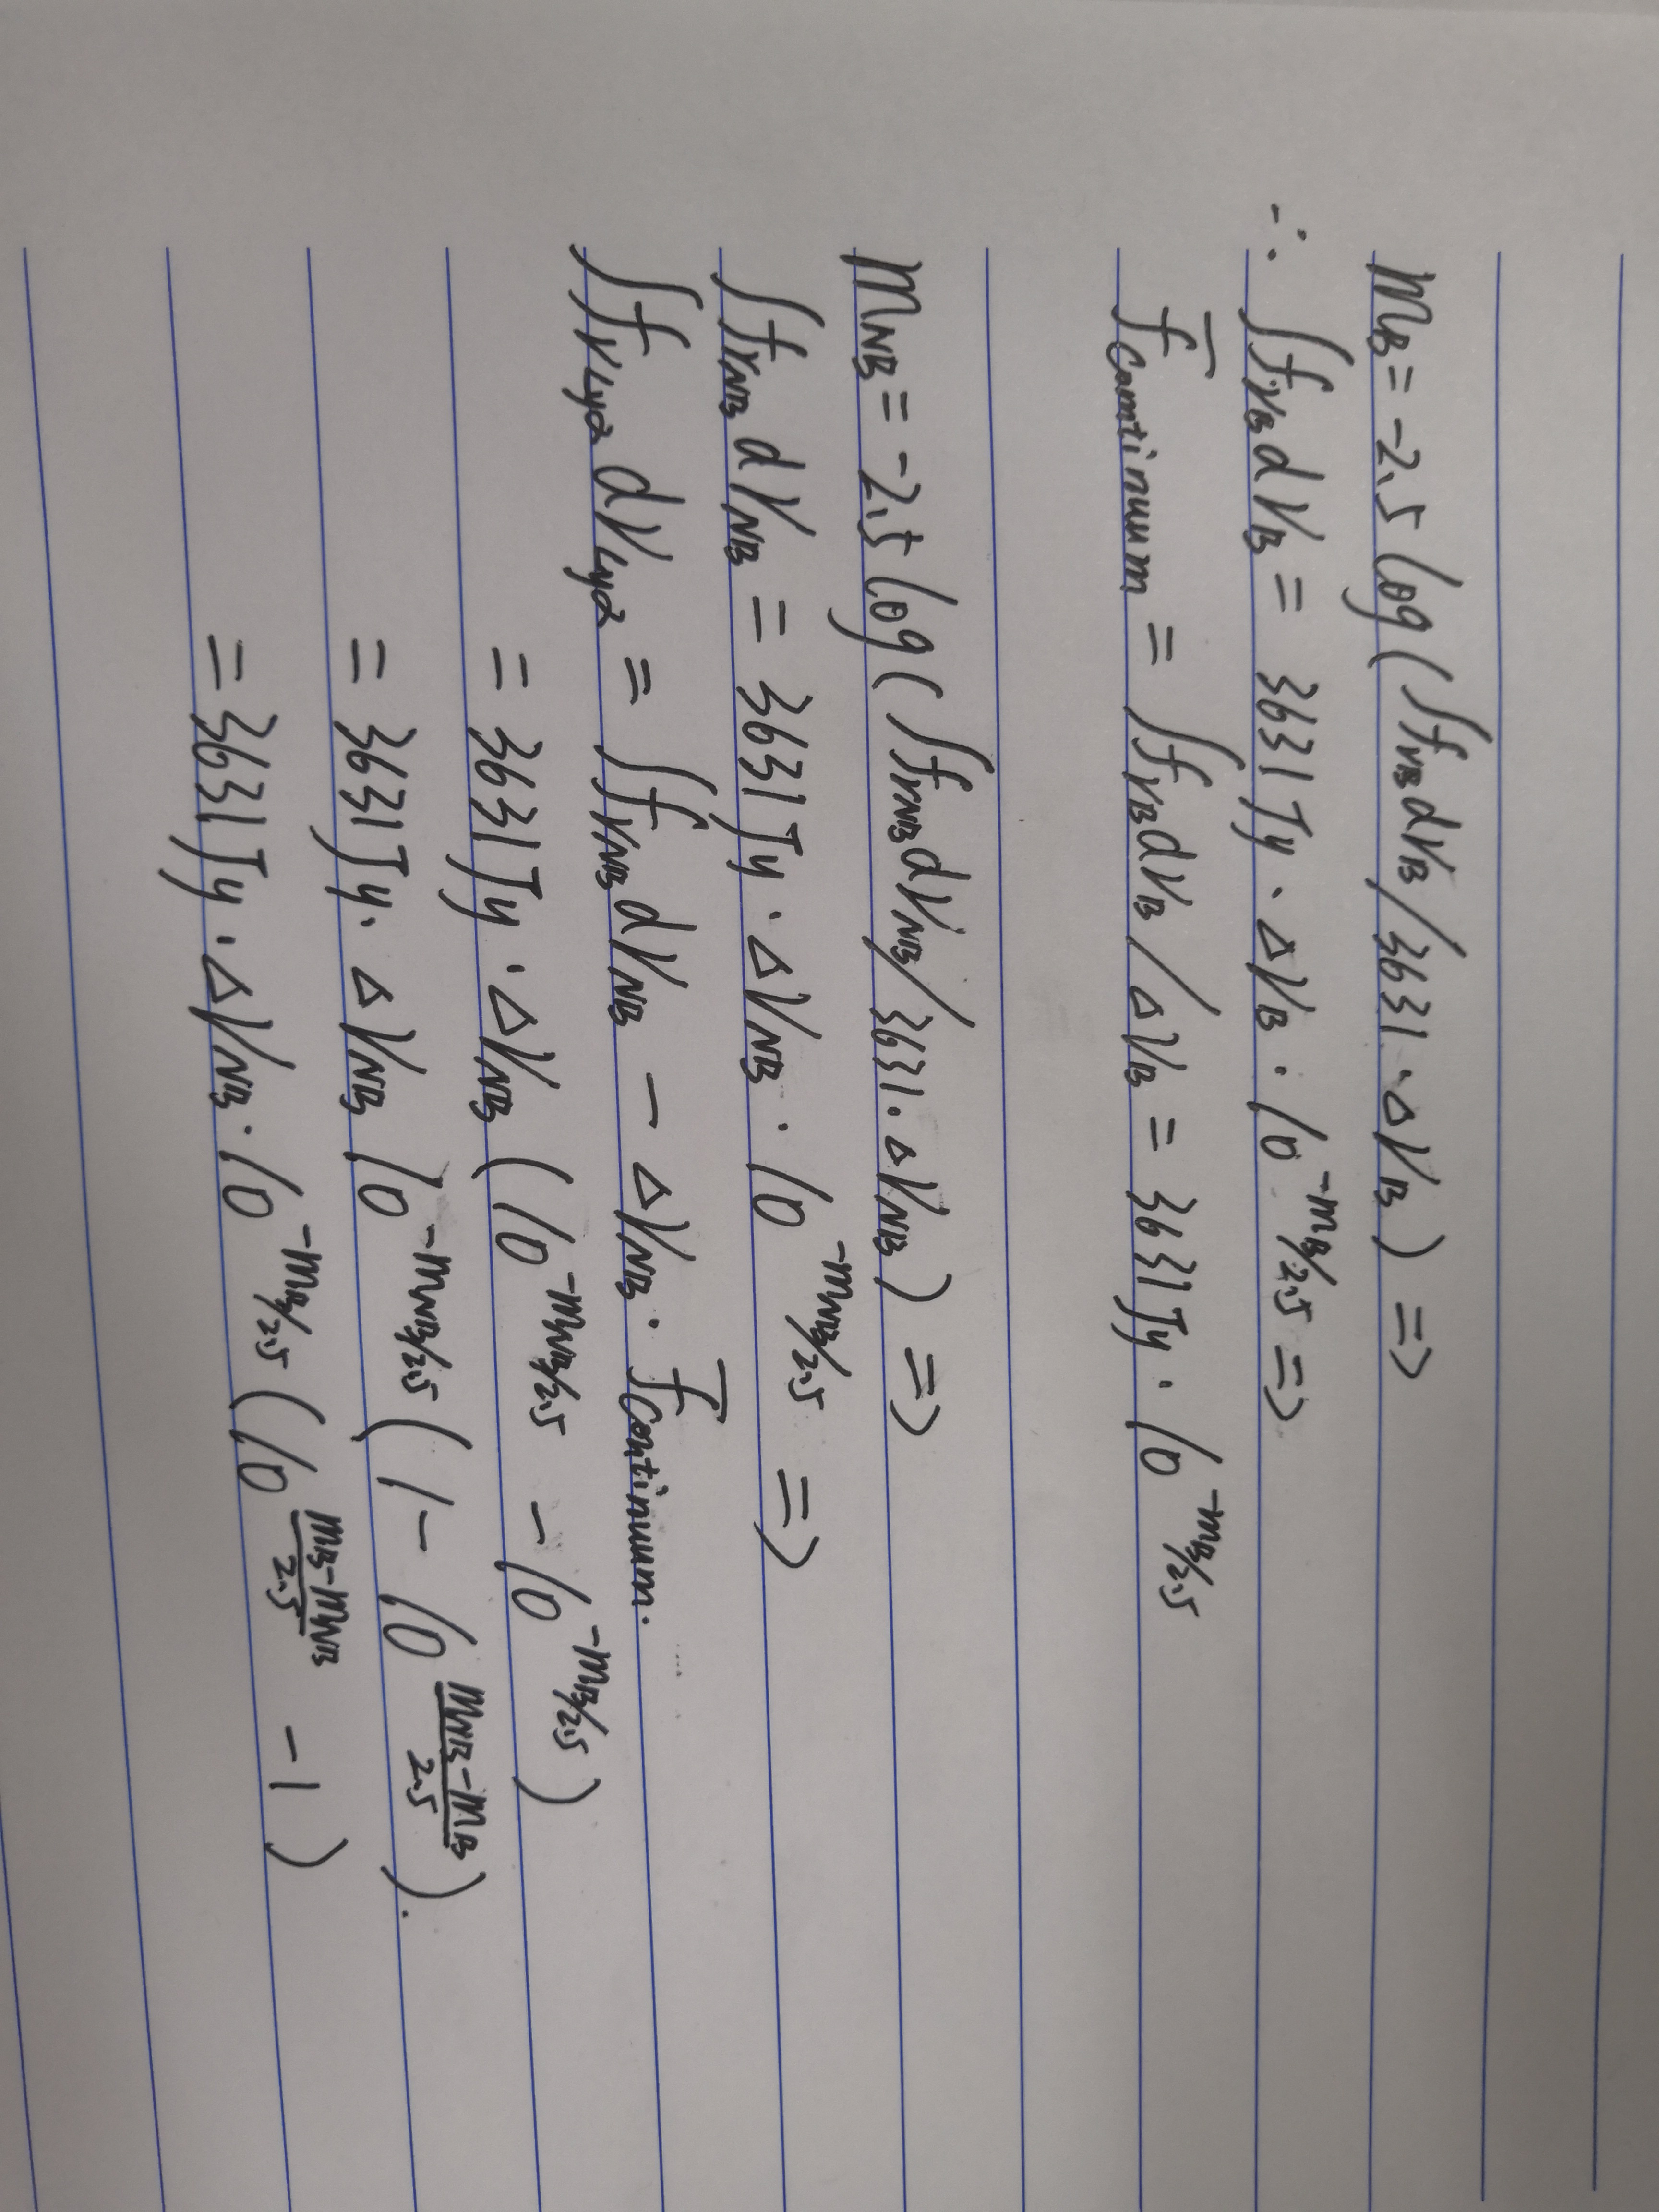 m_B = -2.5 log(∫f_νB dν_B / 3631 · Δν_B) =>
∴ ∫f_νB dν_B = 3631 Jy · Δν_B · 10^(-m_B/2.5) =>
f̄_Continuum = ∫f_νB dν_B / Δν_B = 3631 Jy · 10^(-m_B/2.5)
m_NB = -2.5 log(∫f_νNB dν_NB / 3631 · Δν_NB) =>
∫f_νNB dν_NB = 3631 Jy · Δν_NB · 10^(-m_NB/2.5) =>
∫f_νLyα dν_Lyα = ∫f_νNB dν_NB - Δν_NB · f̄_Continuum.
= 3631 Jy · Δν_NB (10^(-m_NB/2.5) - 10^(-m_B/2.5))
= 3631 Jy · Δν_NB 10^(-m_NB/2.5) (1 - 10^((m_NB - m_B)/2.5)).
= 3631 Jy · Δν_NB · 10^(-m_B/2.5) (10^((m_B - m_NB)/2.5) - 1)